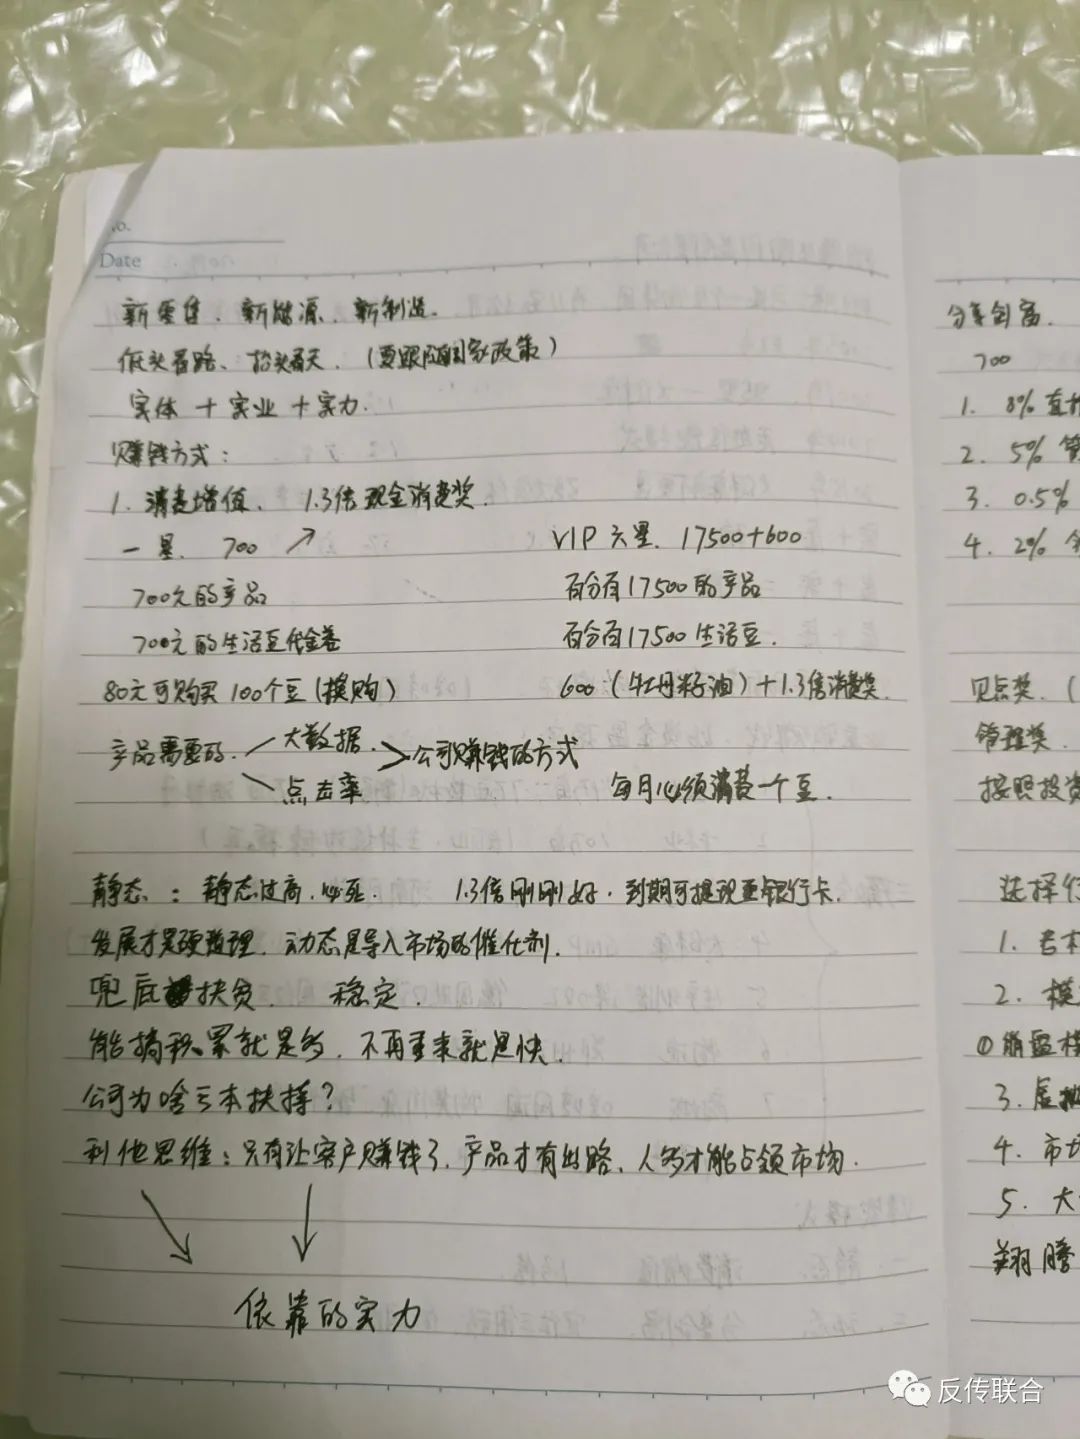 No.
Date
新零售、新能源、新制造。
低头看路、抬头看天、(要跟随国家政策)
实体+实业+实力.
赚钱方式:
1. 消费增值、 1.3倍现金消费奖.
一星. 700 ↗ VIP 六星. 17500+600
700元的产品 百分百17500的产品
700元的生活豆代金卷 百分百17500生活豆.
80元可购买100个豆(换购) 600(牡丹籽油)+1.3倍消费奖
产品需要的. 大数据. 点击率 > 公司赚钱的方式
每月必须消费一个豆.
静态: 静态过高.必死. 1.3倍刚刚好.到期可提现至银行卡.
发展才是硬道理.动态是导入市场的催化剂.
兜底 扶贫. 稳定.
能搞积累就是多.不再重来就是快.
公司为啥亏本扶择?
利他思维:只有让客户赚钱了.产品才有出路、人多才能占领市场.
依靠的实力
分享创富.
700
1. 8% 直
2. 5% 管
3. 0.5%
4. 2%
见点奖.(
管理奖.
按照投资
选择行
1. 
2. 模
①崩盘
3. 虚拟
4. 市场
5. 大
翔腾
反传联合